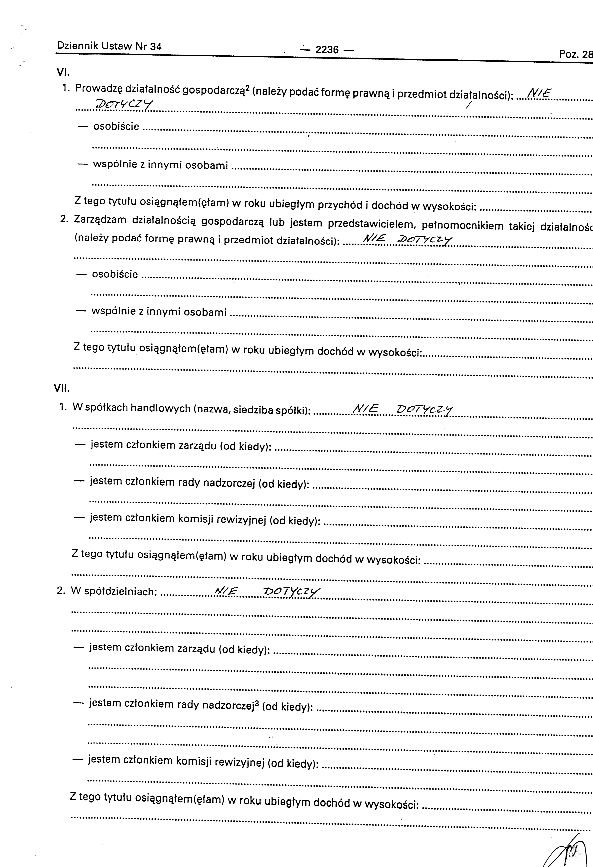 Dziennik Ustaw Nr 34 — 2236 — Poz. 28
VI.
1. Prowadzę działalność gospodarczą² (należy podać formę prawną i przedmiot działalności): NIE
DOTYCZY
— osobiście
— wspólnie z innymi osobami
Z tego tytułu osiągnąłem(ęłam) w roku ubiegłym przychód i dochód w wysokości:
2. Zarządzam działalnością gospodarczą lub jestem przedstawicielem, pełnomocnikiem takiej działalnośc
(należy podać formę prawną i przedmiot działalności): NIE DOTYCZY
— osobiście
— wspólnie z innymi osobami
Z tego tytułu osiągnąłem(ęłam) w roku ubiegłym dochód w wysokości:
VII.
1. W spółkach handlowych (nazwa, siedziba spółki): NIE DOTYCZY
— jestem członkiem zarządu (od kiedy):
— jestem członkiem rady nadzorczej (od kiedy):
— jestem członkiem komisji rewizyjnej (od kiedy):
Z tego tytułu osiągnąłem(ęłam) w roku ubiegłym dochód w wysokości:
2. W spółdzielniach: NIE DOTYCZY
— jestem członkiem zarządu (od kiedy):
— jestem członkiem rady nadzorczej³ (od kiedy):
— jestem członkiem komisji rewizyjnej (od kiedy):
Z tego tytułu osiągnąłem(ęłam) w roku ubiegłym dochód w wysokości: